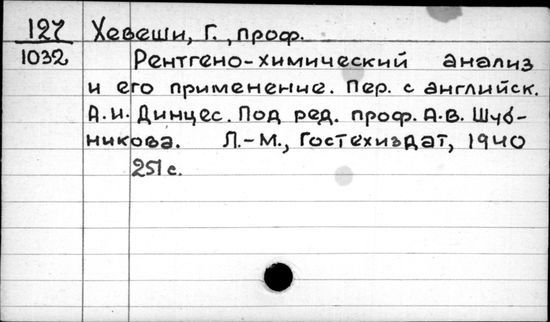 127 Хевеши, Г., проф.
1032 Рентгено-химический анализ
и его применение. Пер. с английск.
А.И. Динцес. Под ред. проф. А.В. Шуб-
никова. Л.-М., Гостехиздат, 1940
251 с.